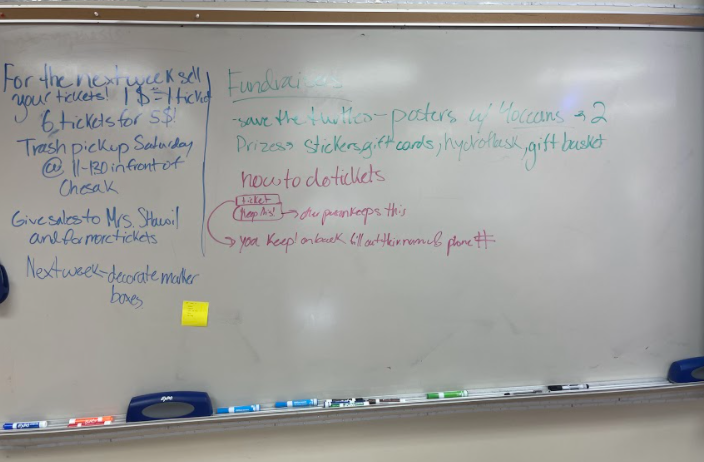 For the next week sell
your tickets! 1 $ = 1 ticket
6 tickets for 5$!
Trash pickup Saturday
@ 11-130 in front of
Chesak
Give sales to Mrs.
and for more tickets
Next week - decorate marker
boxes
Fundraisers
-save the turtles - posters w/ 4oceans = 2
Prizes stickers, gift cards, hydroflask, gift basket
how to do tickets
ticket
keep this! → other person keeps this
you keep! on back fill out their name & phone #
expo